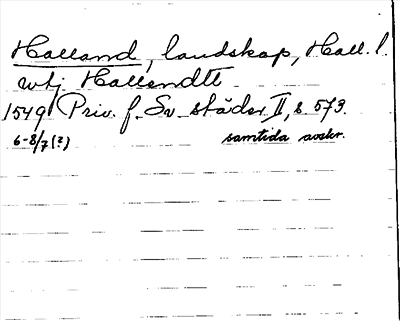 Halland, landskap, Hall. l.
utj Hallendtt
1549 Priv. f. Sv städer II, s 573.
6-8/7 (?) samtida avskr.